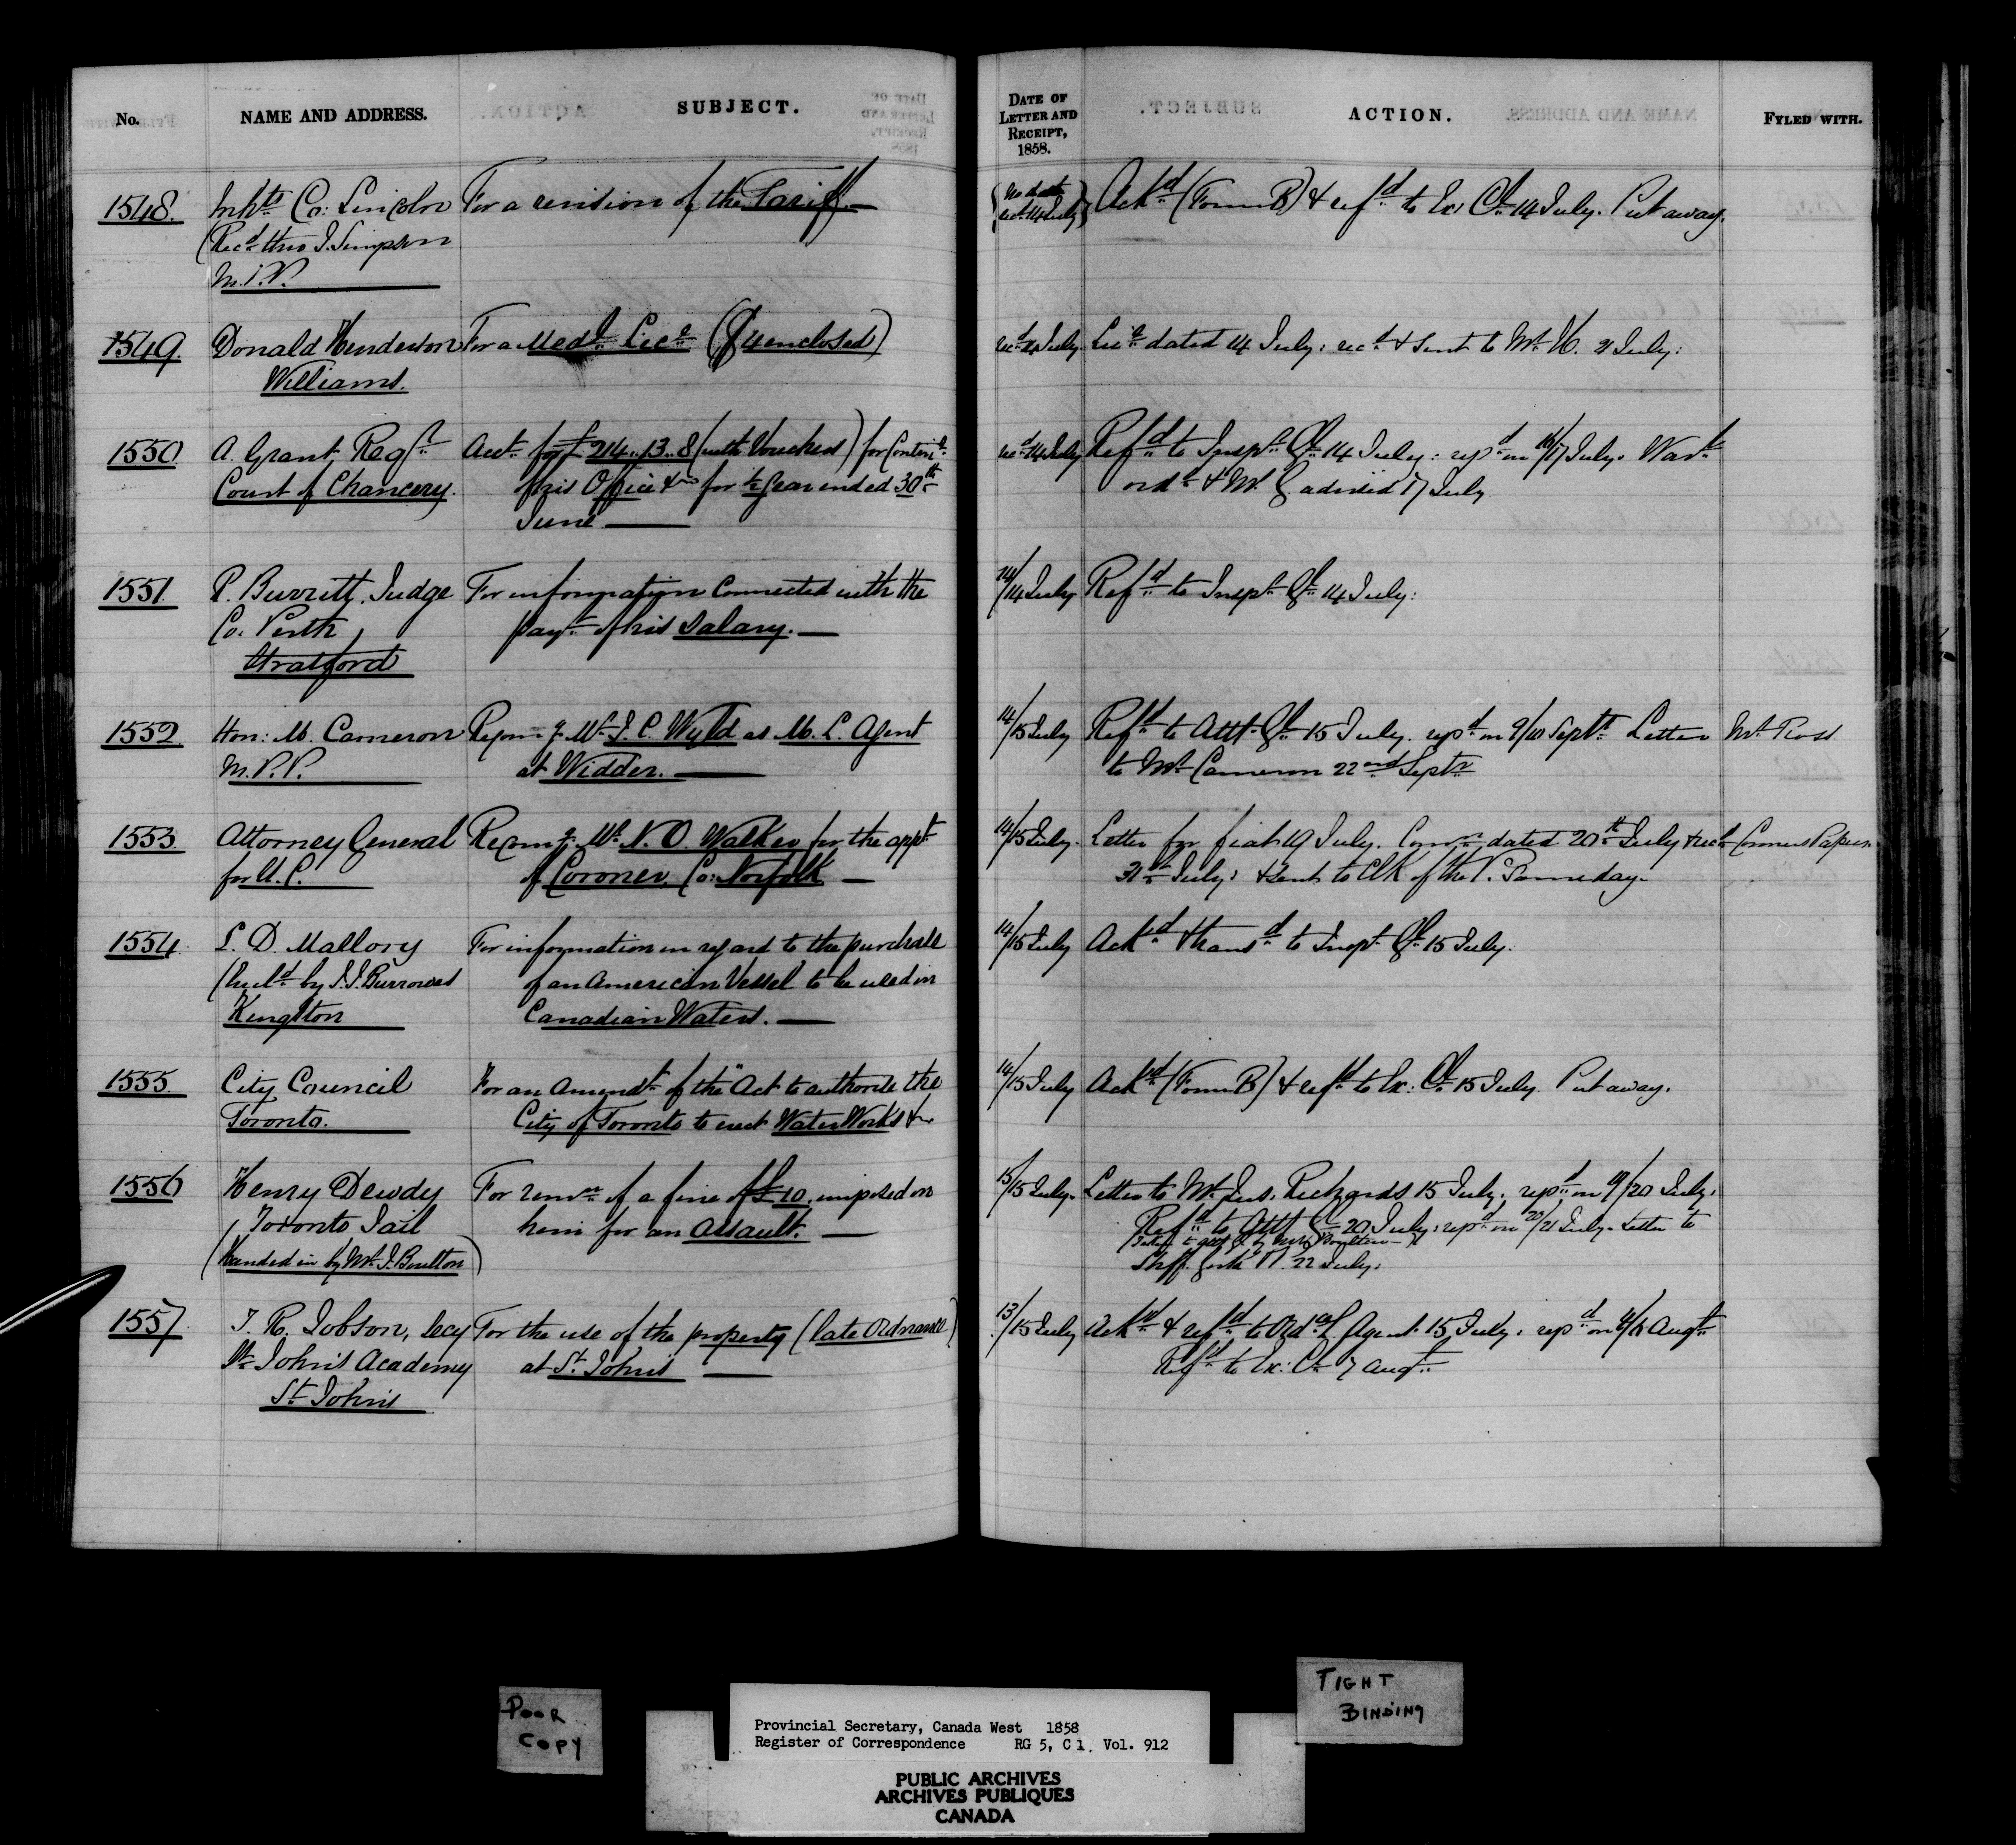 No.
NAME AND ADDRESS.
SUBJECT.
DATE OF
LETTER AND
RECEIPT,
1858.
ACTION.
FYLED WITH.
1548. Inhts Co: Lincoln For a revision of the Tariff. (No date Ackd (Form B) & refd to Ex: Cl 14 July. Put away.
(Recd thro J. Simpson recd 14 July)
M.P.P.
1549. Donald Henderson For a Medl Lice ($4 enclosed) recd 14 July. Lice dated 14 July: recd & sent to Mr H. 21 July:
Williams.
1550 A. Grant Regr Acct for £214..13..8 (with Vouchers) for Contint recd 14 July Refd to Inspr Gl 14 July: repd on 16/17 July. Wart
Court of Chancery. of his Office &c for ½ Year ended 30th ordd & Mr G advised 17 July
June
1551. P. Burritt, Judge For information connected with the 14/14 July Refd to Inspr Gl 14 July:
Co. Perth, payt of his Salary.
Stratford
1552. Hon: M. Cameron Recomg Mr J. C. Wyld as M. L. Agent 14/15 July Refd to Atty Gl 15 July. repd on 9/10 Septr Letter Mr Ross
M.P.P. at Widder. to Mr Cameron 22nd Septr
1553. Attorney General Recomg Mr N. O. Walker for the appt 14/15 July. Letter for fiat 19 July. Comn dated 20th July & recd Coroners Papers.
for U. C. of Coroner, Co: Norfolk 31st July: & sent to Clk of the P. Same day.
1554. L. D. Mallory For information in regard to the purchase 14/15 July Ackd & transd to Inspr Gl 15 July.
(by J. J. Burrowes of an American Vessel to be used in
Kingston Canadian Waters.
1555. City Council For an Amendt of the "Act to authorise the 14/15 July Ackd (Form B) & refd to Ex: Cl 15 July. Put away.
Toronto. City of Toronto to erect Water Works &c
1556 Henry Dewdy For remn of a fine of £10, imposed on 15/15 July. Letter to Mr Jus. Richards 15 July. repd on 19/20 July.
Toronto Jail him for an Assault. Refd to Atty Gl 20 July: repd on 20/21 July. Letter to
(Handed in by Mr J. Boulton) Shff. York & P. 22 July.
1557. T. R. Jobson, Secy For the use of the property (late Ordnance) 13/15 July Ackd & refd to Ordce Agent 15 July. repd on Augt
St John's Academy at St Johns Refd to Ex: Cl 7 Augt
St Johns
POOR
COPY
TIGHT
BINDING
Provincial Secretary, Canada West 1858
Register of Correspondence RG 5, C 1, Vol. 912
PUBLIC ARCHIVES
ARCHIVES PUBLIQUES
CANADA